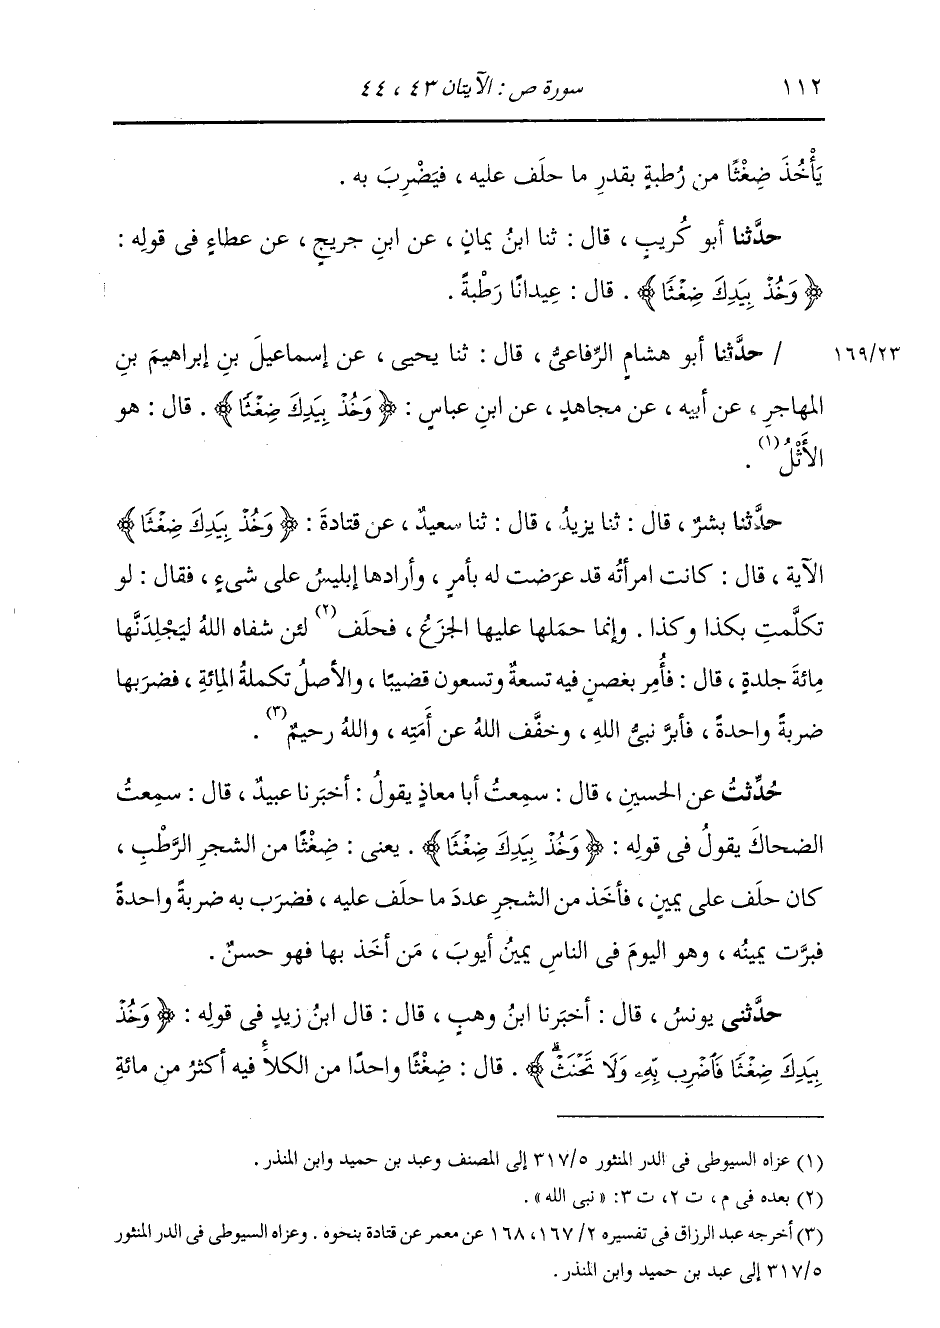 ١١٢ سورة ص : الآيتان ٤٣ ، ٤٤
يَأْخُذَ ضِغْثًا من رُطبةٍ بقدرِ ما حلَف عليه ، فيَضْرِبَ به .
حدَّثنا أبو كُريبٍ ، قال : ثنا ابنُ يمانٍ ، عن ابنِ جريجٍ ، عن عطاءٍ فى قولِه :
﴿ وَخُذْ بِيَدِكَ ضِغْثًا ﴾ . قال : عِيدانًا رَطْبةً .
١٦٩/٢٣ / حدَّثنا أبو هشامٍ الرِّفاعىُّ ، قال : ثنا يحيى ، عن إسماعيلَ بنِ إبراهيمَ بنِ
المهاجرِ ، عن أبيه ، عن مجاهدٍ ، عن ابنِ عباسٍ : ﴿ وَخُذْ بِيَدِكَ ضِغْثًا ﴾ . قال : هو
الأَثْلُ(١) .
حدَّثنا بشرٌ ، قال : ثنا يزيدُ ، قال : ثنا سعيدٌ ، عن قتادةَ : ﴿ وَخُذْ بِيَدِكَ ضِغْثًا ﴾
الآية ، قال : كانت امرأتُه قد عرَضت له بأمرٍ ، وأرادها إبليسُ على شىءٍ ، فقال : لو
تكلَّمتِ بكذا وكذا . وإنما حمَلها عليها الجزَعُ ، فحلَف(٢) لئن شفاه اللهُ ليَجْلِدَنَّها
مِائةَ جلدةٍ ، قال : فأُمِر بغصنٍ فيه تسعةٌ وتسعون قضيبًا ، والأصلُ تكملةُ المِائةِ ، فضرَبها
ضربةً واحدةً ، فأبرَّ نبىُّ اللهِ ، وخفَّف اللهُ عن أَمَتِه ، واللهُ رحيمٌ(٣) .
حُدِّثتُ عن الحسينِ ، قال : سمِعتُ أبا معاذٍ يقولُ : أخبَرنا عبيدٌ ، قال : سمِعتُ
الضحاكَ يقولُ فى قولِه : ﴿ وَخُذْ بِيَدِكَ ضِغْثًا ﴾ . يعنى : ضِغْثًا من الشجرِ الرَّطْبِ ،
كان حلَف على يمينٍ ، فأخَذ من الشجرِ عددَ ما حلَف عليه ، فضرَب به ضربةً واحدةً
فبرَّت يمينُه ، وهو اليومَ فى الناسِ يمينُ أيوبَ ، مَن أخَذ بها فهو حسنٌ .
حدَّثنى يونسُ ، قال : أخبَرنا ابنُ وهبٍ ، قال : قال ابنُ زيدٍ فى قولِه : ﴿ وَخُذْ
بِيَدِكَ ضِغْثًا فَاضْرِب بِّهِۦ وَلَا تَحْنَثْ ﴾ . قال : ضِغْثًا واحدًا من الكلأَ فيه أكثرُ من مائةِ
(١) عزاه السيوطى فى الدر المنثور ٣١٧/٥ إلى المصنف وعبد بن حميد وابن المنذر .
(٢) بعده فى م ، ت ٢، ت ٣: « نبى الله » .
(٣) أخرجه عبد الرزاق فى تفسيره ١٦٧/٢، ١٦٨ عن معمر عن قتادة بنحوه . وعزاه السيوطى فى الدر المنثور
٣١٧/٥ إلى عبد بن حميد وابن المنذر .